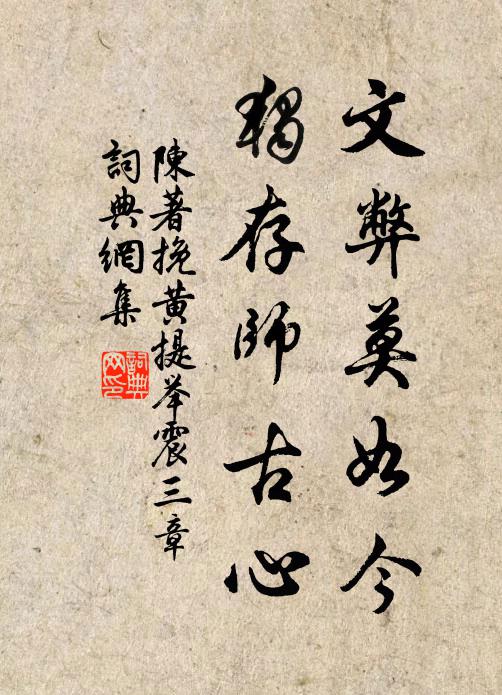 文弊莫如今
獨存師古心
陳著挽黄提举震三章
詞典網集
詞典網印